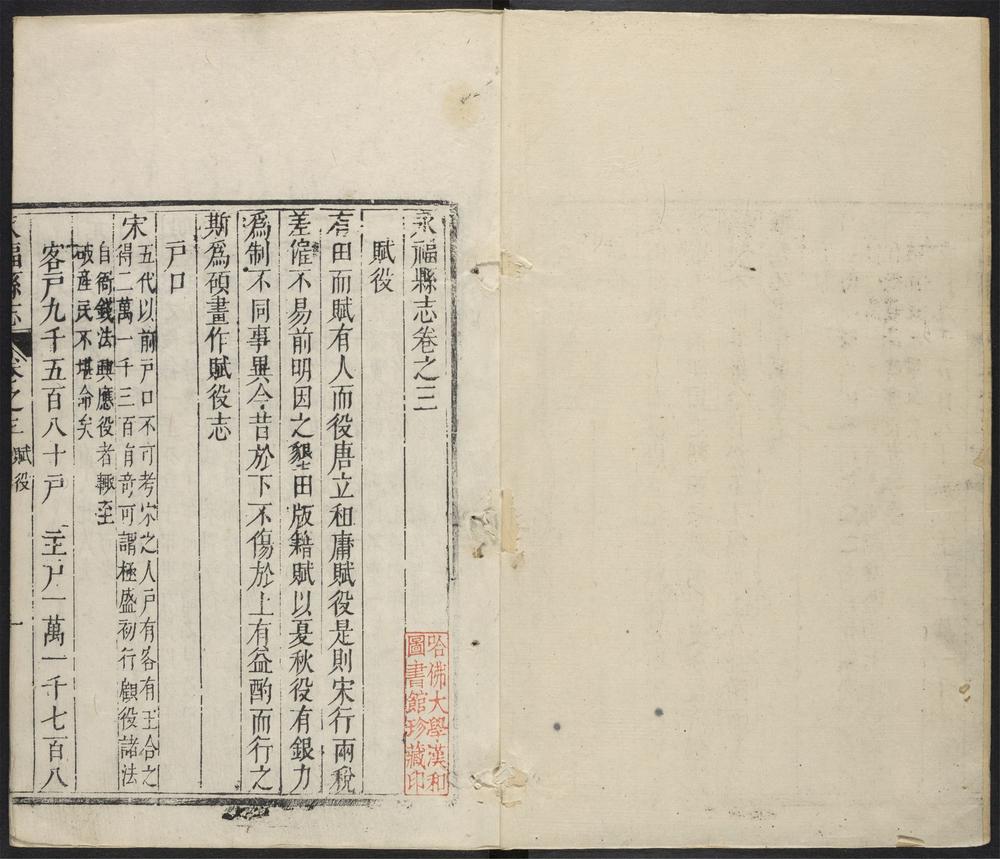 永福縣志卷之三
賦役
有田而賦有人而役唐立租庸賦役是則宋行兩稅
差僱不易前明因之墾田版籍賦以夏秋役有銀力
為制不同事異今昔於下不傷於上有益酌而行之
斯為碩畫作賦役志
戸口
宋
五代以前戸口不可考宋之人戸有客有主合之
得二萬一千三百有奇可謂極盛初行顧役諸法
自衙錢法興應役者輒至
破産民不堪命矣
客戸九千五百八十戸 主戸一萬一千七百八
永福縣志 卷之三 賦役 一
哈佛大學漢和
圖書館珍藏印